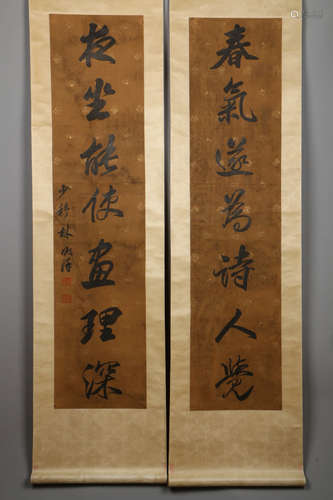 春氣遂為诗人覺
夜坐能使畫理深
少穆林則徐